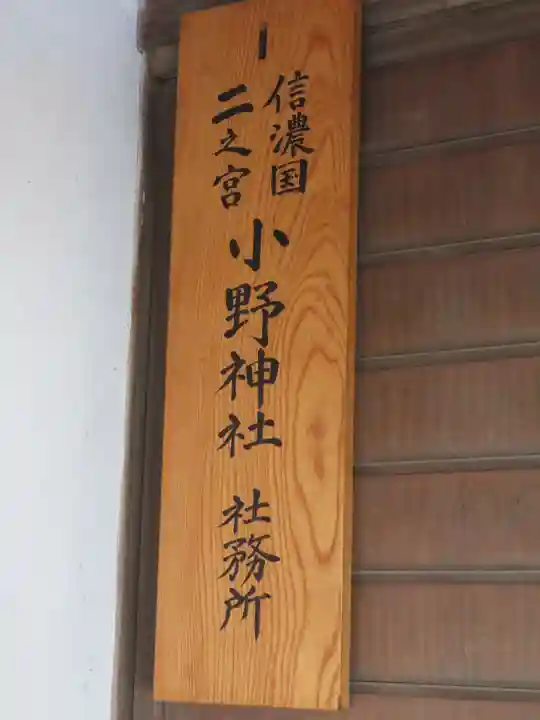 信濃国
二之宮
小野神社
社務所